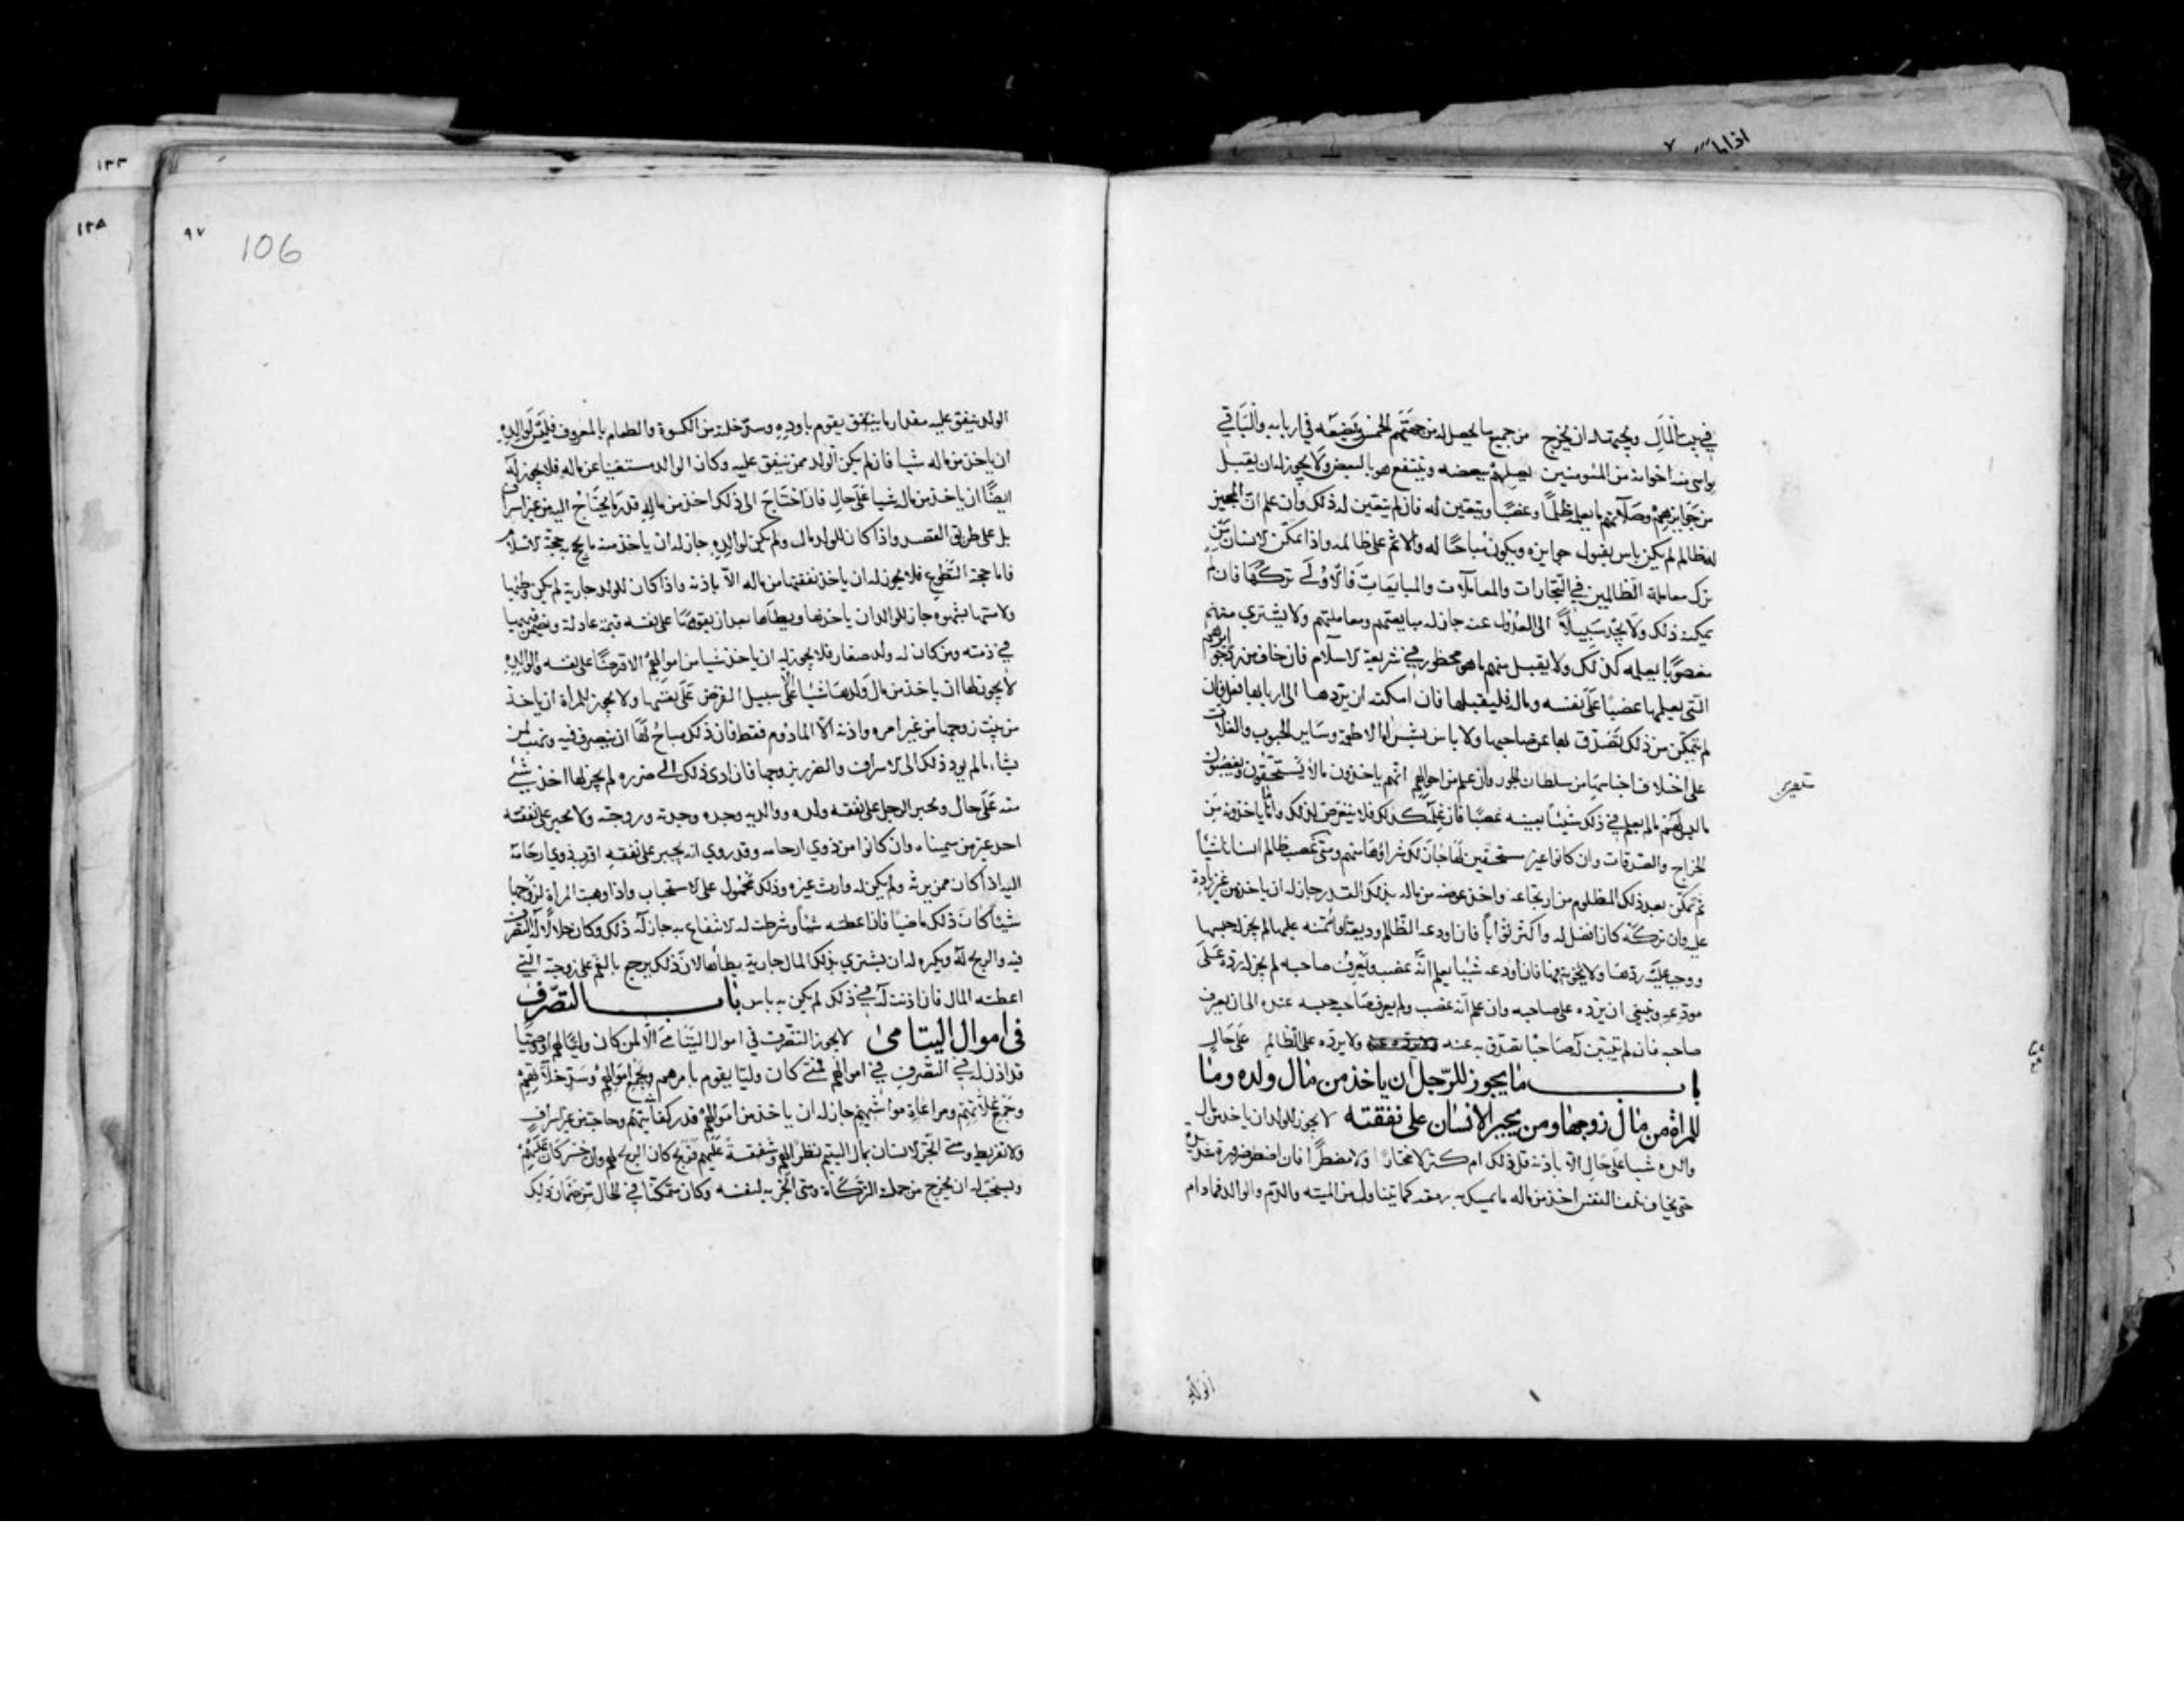 في بيت المال ويجتهد ان يخرج من جميع ما يحصل له من جهتهم الخمس ويضعه في اربابه والباقي
يواسي منه اخوانه من المؤمنين يصلهم ببعضه وينتفع هو بالبعض ولا يجوز له ان يقبل
من جوايزهم وصلاتهم ما يعلمه ظلما وغصبا ويتعين له فان لم يتعين له ذلك وان علم ان المجيز
له ظالم لم يكن باس بقبول جوايزه ويكون مباحا له والاثم على ظالمه واذا تمكن الانسان من
ترك معاملة الظالمين في التجارات والمعاملات والمبايعات فالاولى تركها فان لم
يمكنه ذلك ولا يجد سبيلا الى العدول عنه جاز له مبايعتهم ومعاملتهم ولا يشتري منهم
مغصوبا يعلمه كذلك ولا يقبل منهم ما هو محظور في شريعة الاسلام فان خاف من رد جوايزهم
التي يعلمها غصبا على نفسه وماله فليقبلها فان امكنه ان يردها الى اربابها فعل وان
لم يتمكن من ذلك تصدق بها عن صاحبها ولا باس بشرا الاطعمة وساير الحبوب والغلات
على اختلاف اجناسها من سلطان الجور وان علم من احوالهم انهم ياخذون ما لا يستحقون ويغصبون
ما ليس لهم ما لم يعلم في ذلك شيئا بعينه غصبا فان علمه كذلك فلا يتعرض لذلك واما ياخذونه من
الخراج والصدقات وان كانوا غير مستحقين لها جاز لك شراؤها منهم ومتى غصب ظالم انسانا شيئا
ثم تمكن بعد ذلك المظلوم من ارتجاعه واخذ عوضه من ماله بذلك القدر جاز له ان ياخذ من غير زيادة
عليه وان تركه كان افضل له واكثر ثوابا فان اودعه الظالم وديعة وائتمنه عليها لم يجز له حبسها
ووجب عليه ردها ولا يخونه فيها فان اودعه شيئا يعلم انه غصب ويعرف صاحبه لم يجز له رده على
مودعه وينبغي ان يرده على صاحبه وان علم انه غصب ولم يعرف صاحبه حبسه عنده الى ان يعرف
صاحبه فان لم يتبين له صاحبا تصدق به عنه ولا يرده على الظالم على حال
باب ما يجوز للرجل ان ياخذ من مال ولده وما
للمراة من مال زوجها ومن يجبر الانسان على نفقته لا يجوز للولد ان ياخذ من مال
والده شيا على حال الا باذنه قل ذلك ام كثر لا مختارا ولا مضطرا فان اضطر ضرورة شديدة
حتى يخاف تلف النفس اخذ من ماله ما يمسك به رمقه كما يتناول من الميتة والدم والوالد فما دام
الولد
١٣٣
١٣٥
٩٧
106
الولد ينفق عليه مقدار ما ينفق يقوم باوده وسد خلته من الكسوة والطعام بالمعروف فليس لوالده
ان ياخذ من ماله شيا فان لم يكن الولد ممن ينفق عليه وكان الوالد مستغنيا عن ماله فلا يجوز له
ايضا ان ياخذ من ماله شيا على حال فان احتاج الى ذلك اخذ من ماله قدر ما يحتاج اليه من غير اسراف
بل على طريق القصد واذا كان للولد مال ولم يكن لوالده جاز له ان ياخذ منه ما يحج به حجة الاسلام
فاما حجة التطوع فلا يجوز له ان ياخذ نفقتها من ماله الا باذنه واذا كان للولد جارية لم يكن وطئها
ولا مسها بشهوة جاز للوالد ان ياخذها ويطاها بعد ان يقومها على نفسه قيمة عادلة ويضمن قيمتها
في ذمته ومن كان له ولد صغار فلا يجوز له ان ياخذ شيا من اموالهم الا قرضا على نفسه والوالدة
لا يجوز لها ان ياخذ من مال ولدها شيئا الا على سبيل القرض على نفسها ولا يجوز للمراة ان ياخذ
من بيت زوجها من غير امره واذنه الا المادوم فقط فان ذلك مباح لها ان يتصرف فيه وتهب لمن
يشاء ما لم يود ذلك الى الاسراف والضرر بزوجها فان ادى ذلك الى ضرره لم يجز لها اخذ شئ
منه على حال ويجبر الرجل على نفقة ولده ووالديه وجده وجدته وزوجته ولا يجبر على نفقة
احد غير من سميناه وان كانوا من ذوي ارحامه وقد روي انه يجبر على نفقة اقرب ذوي ارحامه
اليه اذا كان ممن يرثه ولم يكن له وارث غيره وذلك محمول على الاستحباب واذا وهبت المراة لزوجها
شيئا كان ذلك ماضيا فاذا اعطته شيئا وشرطت له الانتفاع به جاز له ذلك وكان حلالا له التصرف
فيه والربح له ويكره له ان يشتري بذلك المال جارية يطاها لان ذلك يرجع بالغم على زوجته التي
اعطته المال فان اذنت له في ذلك لم يكن به باس باب التصرف
في اموال اليتامى لا يجوز التصرف في اموال اليتامى الا لمن كان وليا لهم او وصيا
قد اذن له في التصرف في اموالهم فمتى كان وليا يقوم بامرهم وبجمع اموالهم وسد خلاتهم
وجمع غلاتهم ومراعاة مواشيهم جاز له ان ياخذ من اموالهم قدر كفايته وحاجته من غير اسراف
ولا تفريط ومتى اتجر الانسان بمال اليتيم نظرا لهم وشفقة عليهم فربح كان الربح لهم وان خسر كان عليهم
ويستحب له ان يخرج من جملته الزكاة ومتى اتجر به لنفسه وكان متمكنا في الحال من ضمان ذلك